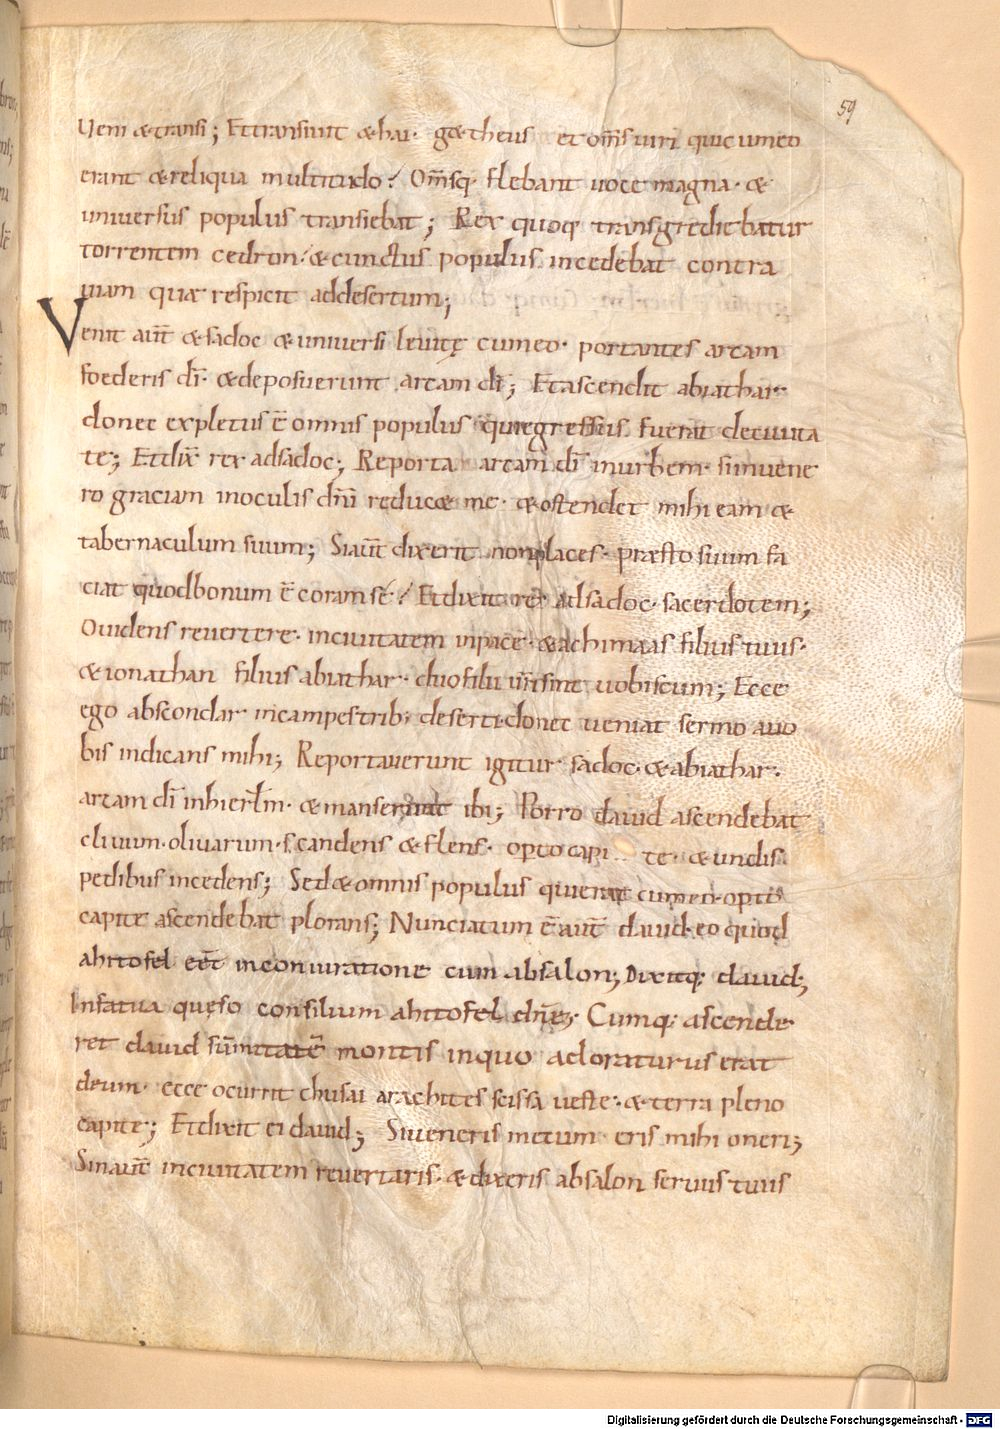 59
Veni & transi; Et transiuit &hai· g&heus et om̄s uiri qui cum eo
erant & reliqua multitudo? Om̄sq· flebant uoce magna· &
uniuersus populus transiebat; Rex quoq; transgrediebatur
torrentem cedron? & cunctus populus incedebat contra
uiam quæ respicit ad desertum;
Venit aut̄ & sadoc & uniuersi leuitę cum eo· portantes arcam
foederis dī· & deposuerunt arcam dī; Et ascendit abiathar
donec expletus ē omnis populus qui egressus fuerat de ciuita
te; Et dix̄ rex ad sadoc; Reporta arcam dī in urbem· si inuene
ro graciam in oculis dn̄i reduc& me· & ostendet mihi eam &
tabernaculum suum; Si aut̄ dixerit non places· præsto sum fa
ciat quod bonum ē coram se? Et dixit rex ad sadoc· sacerdotem;
O uidens reuertere· in ciuitatem in pace· & achimaas filius tuus·
& ionathan filius abiathar· duo filii ur̄i sint uobiscum; Ecce
ego abscondar in campestrib; deserti· donec ueniat sermo a uo
bis indicans mihi; Reportauerunt igitur sadoc· & abiathar·
arcam dī in hierl̄m· & manserunt ibi; Porro dauid ascendebat
cliuum· oliuarum· scandens & flens· opto capi te· & undis
pedibus incedens; Sed & omnis populus qui erat cum eo· opto
capite ascendebat plorans; Nunciatum ē aut̄ dauid· eo quod
ahitofel eēt in coniuratione cum absalon; Dixitq; dauid;
Infatua queso consilium ahitofel dn̄e; Cumq; ascende
ret dauid sūmitatē montis in quo adoraturus erat
deum· ecce ocurrit chusai arachites scissa ueste· & terra pleno
capite; Et dixit ei dauid; Si ueneris mecum eris mihi oneri;
Sin aut̄ in ciuitatem reuertaris· & dixeris absalon seruus tuus
Digitalisierung gefördert durch die Deutsche Forschungsgemeinschaft - DFG